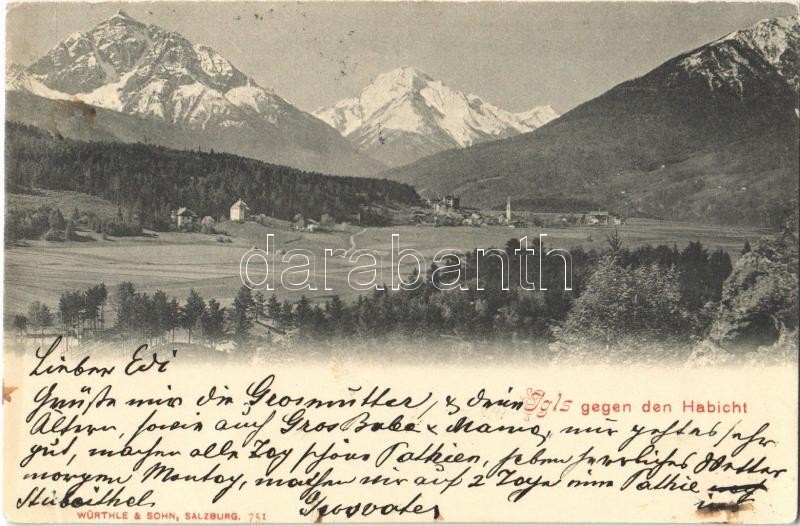 darabanth
Lieber Edi
Igls gegen den Habicht
Grüße mir die Grosmutter, & deine
Altern, sowie auch GrosBaba & Mama, mir geht es sehr
gut, machen alle Tag schöne Pathien, haben herrliches Wetter
morgen Montag, machen wir auf 2 Tage eine Pathie ins
Stubeithel
Grosvater
WÜRTHLE & SOHN, SALZBURG. 751